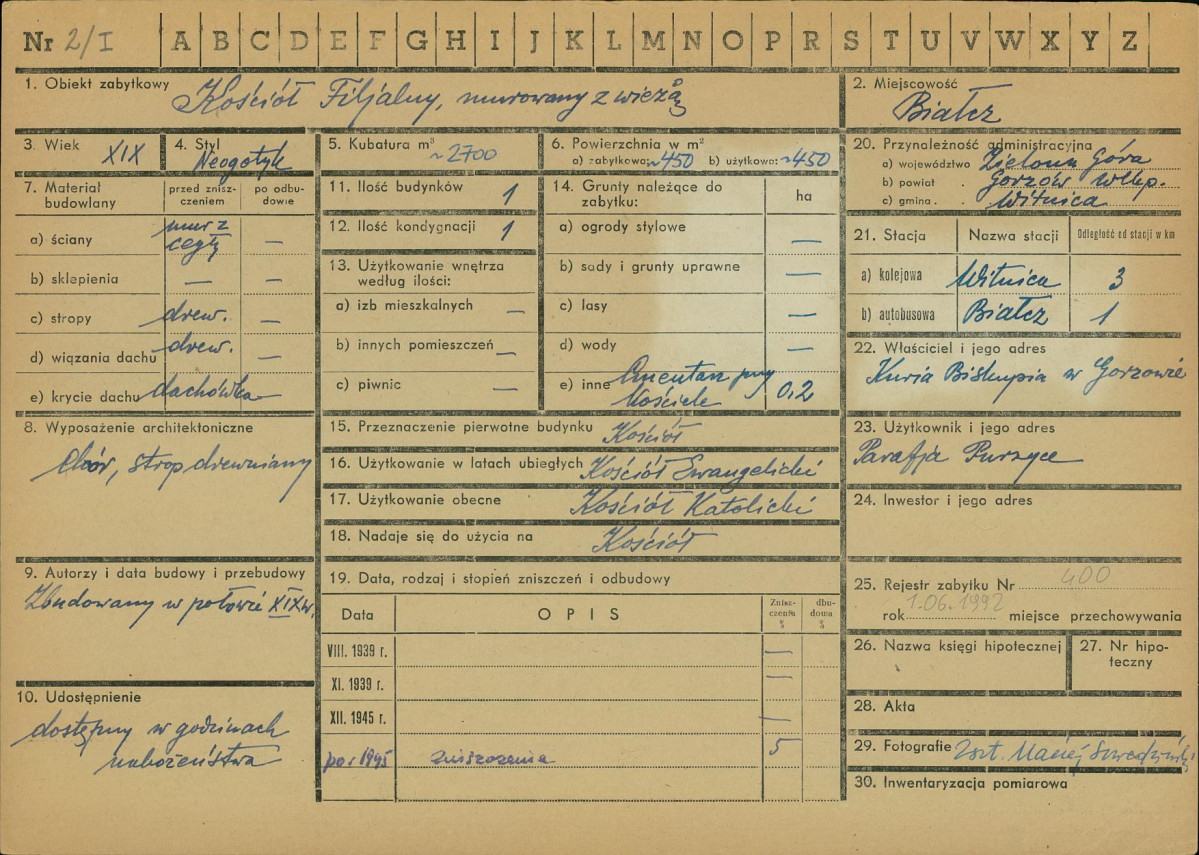 Nr 2/I A B C D E F G H I J K L M N O P R S T U V W X Y Z
1. Obiekt zabytkowy Kościół Filjalny, murowany z wieżą
2. Miejscowość
Białcz
3. Wiek XIX
4. Styl
Neogotyk
5. Kubatura m³
~2700
6. Powierzchnia w m²
a) zabytkowa: ~450 b) użytkowa: ~450
20. Przynależność administracyjna
a) województwo Zielona Góra
b) powiat Gorzów Wlkp.
c) gmina Witnica
7. Materiał
budowlany
przed znisz-
czeniem
po odbu-
dowie
a) ściany mur z
cegły —
b) sklepienia — —
c) stropy drew. —
d) wiązania dachu drew. —
e) krycie dachu dachówka
11. Ilość budynków 1
12. Ilość kondygnacji 1
13. Użytkowanie wnętrza
według ilości:
a) izb mieszkalnych —
b) innych pomieszczeń —
c) piwnic —
14. Grunty należące do
zabytku:
ha
a) ogrody stylowe —
b) sady i grunty uprawne —
c) lasy —
d) wody —
e) inne Cmentarz przy
Kościele 0,2
21. Stacja Nazwa stacji Odległość od stacji w km
a) kolejowa Witnica 3
b) autobusowa Białcz 1
22. Właściciel i jego adres
Kuria Biskupia w Gorzowie
8. Wyposażenie architektoniczne
Chór, strop drewniany
15. Przeznaczenie pierwotne budynku Kościół
16. Użytkowanie w latach ubiegłych Kościół Ewangelicki
17. Użytkowanie obecne Kościół Katolicki
18. Nadaje się do użycia na Kościół
23. Użytkownik i jego adres
Parafja
24. Inwestor i jego adres
9. Autorzy i data budowy i przebudowy
Zbudowany w połowie XIX w.
19. Data, rodzaj i stopień zniszczeń i odbudowy
Data OPIS Znisz-
czenia
%
dbu-
dowa
%
VIII. 1939 r. —
XI. 1939 r. —
XII. 1945 r. —
po r 1945 zniszczenia 5
25. Rejestr zabytku Nr 400
rok 1.06.1992 miejsce przechowywania
26. Nazwa księgi hipotecznej
27. Nr hipo-
teczny
10. Udostępnienie
dostępny w godzinach
nabożeństwa
28. Akta
29. Fotografie Maciej
30. Inwentaryzacja pomiarowa